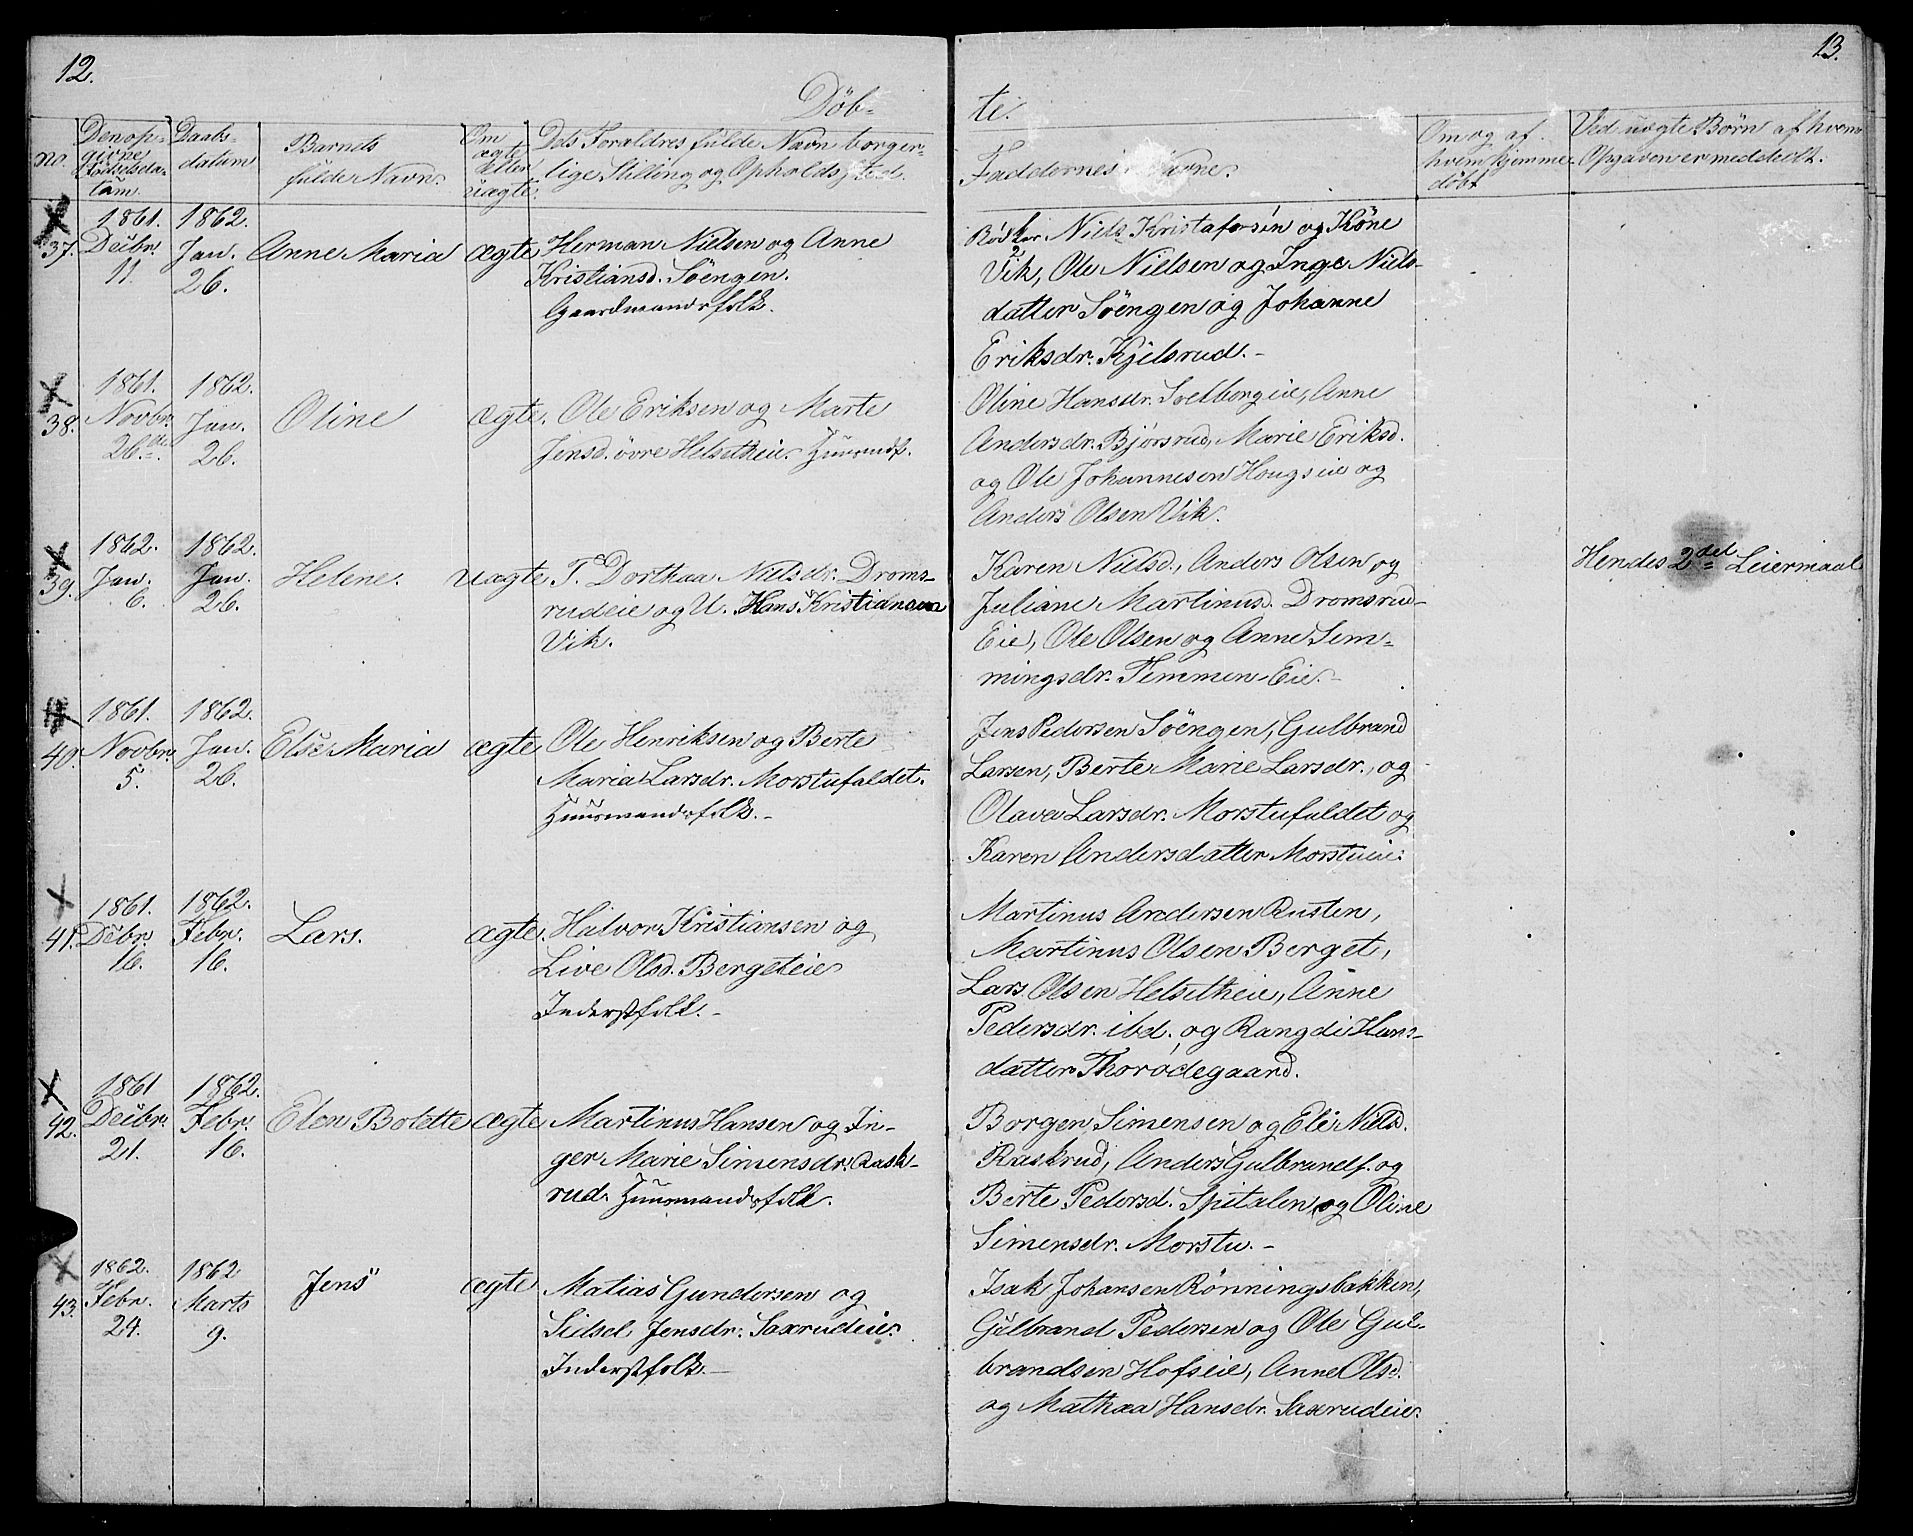 12.
13.
Döb-
te.
no.
Den op-
givne
Födselsda-
tum.
Daabs-
datum
Barnets
fulde Navn.
Om
ægte
eller
uægte.
Dets Foraldres fulde Navn borger-
lige Stilling og Opholdssted.
Faddernes Navne.
Om og af
hvem hjemme
döbt.
Ved uægte Börn af hvem
Opgaven er meddeelt.
37.
1861.
Decbr.
11.
1862.
Jan.
26.
Anne Maria
ægte
Herman Nielsen og Anne
Kristiansd. Söengen.
Gaardmandsfolk.
Niels Kristafersön og Köne
Vik, Ole Nielsen og Inge Niels-
datter Söengen og Johanne
Eriksdr. Kjelsrud.-
38.
1861.
Novbr.
26.de
1862.
Jan.
26.
Oline
ægte.
Ole Eriksen og Marte
Jensd. övre Helsetheie. Huusmdf.
Oline Hansdr. Soelborgeie, Anne
Andersdr. Björsrud, Marie Eriksd.
og Ole Johannesen Hougseie og
Anders Olsen Vik.
39.
1862.
Jan.
6.
1862.
Jan.
26.
Helene.
uægte
P. Dorthea Nielsdr. Droms-
rudeie og U. Hans Kristiansen
Vik.
Karen Nielsd., Anders Olsen og
Juliane Martinusd. Dromsrud-
Eie, Ole Olsen og Anne Sim-
mingsdr. Timmen Eie.-
Hendes 2det Leiermaal
40.
1861.
Novbr.
5.
1862.
Jan.
26.
Else Maria
ægte
Ole Henriksen og Berte
Maria Larsdr. Morstufaldet.
Huusmandsfolk.-
Jens Pedersen Söengen, Gulbrand
Larsen, Berte Marie Larsdr., og
Olava Larsdr. Morstufaldet og
Karen Andersdatter Morstueie.
41.
1861.
Decbr.
16.
1862.
Febr.
16.
Lars.
ægte.
Halvor Kristiansen og
Live Olsd. Bergeteie
Inderstfolk.-
Martinus Andersen Rusten,
Martinus Olsen Berget,
Lars Olsen Helsetheie, Anne
Pedersdr. ibd. og Rangdi Hans-
datter Thorödegaard.
42.
1861
Decbr.
21.
1862.
Febr.
16.
Elen Bolette
ægte
Martinus Hansen og In-
ger Marie Simensdr. Rask-
rud. Huusmandsfolk.
Borgen Simensen og Eli Nielsd.
Raskrud, Anders Gulbrands. og
Berte Pedersd. Spitalen og Oline
Simensdr. Morstu.-
43.
1862.
Febr.
24.
1862
Marts
9.
Jens
ægte
Matias Gundersen og
Sidsel Jensdr. Saxrudeie.
Inderstfolk.-
Isak Johansen Rönningsbakken,
Gulbrand Pedersen og Ole Gul-
brandsen Hofseie, Anne Olsd.
og Mathea Hansdr. Saxrudeie.